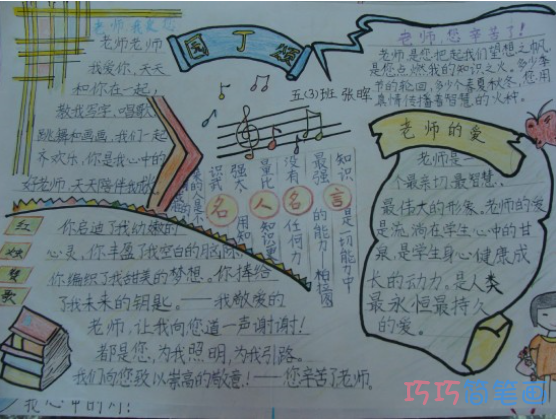 老师我爱您
老师老师
我爱你,天天
和你在一起,
教我写字,唱歌
跳舞和画画,我们一起
齐欢乐,你是我心中的
好老师,天天陪伴我
园丁颂
五(3)班 张晖
老师,您辛苦了!
老师是您把起我们望想之帆
是您点燃我的知识之火,多少季
节的轮回,多少个春夏秋冬,您用
真情传播着智慧的火种。
老师的爱
老师是一
个最亲切,最智慧,
最伟大的形象。老师的爱
是流淌在学生心中的甘
泉,是学生身心健康成
长的动力。是人类
最永恒最持久
的爱。
名人名言
知识是一切能力中
最强的能力——柏拉图
没有任何力
量比知识更
强大,用知
识武
红
烛
赞
歌
你启迪了我幼嫩的
心灵。你丰盈了我空白的脑际
你编织了我甜美的梦想。你捧给
了我未来的钥匙。——我敬爱的
老师,让我向您道一声谢谢!
都是您,为我照明,为我引路。
我们向您致以崇高的敬意!——您辛苦了老师。
我心中的
巧巧简笔画